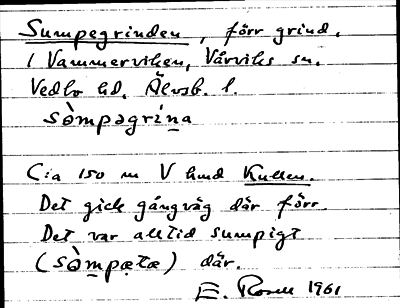 Sumpegrinden, förr grind.
I Vammerviken, Vårviks sn.
Vedbo hd. Älvsb. l.
sòmpəgrína
Cia 150 m V hmd Kullen.
Det gick gångväg där förr.
Det var alltid sumpigt
(sòmpətə) där.
E. Rosell 1961